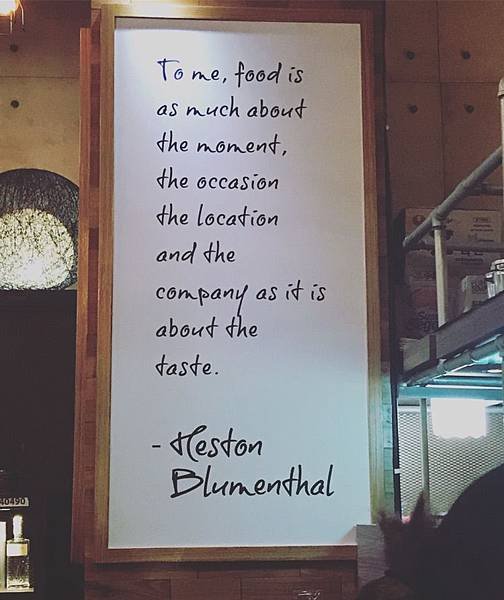 To me, food is
as much about
the moment,
the occasion
the location
and the
company as it is
about the
taste.
- Heston
Blumenthal
40490